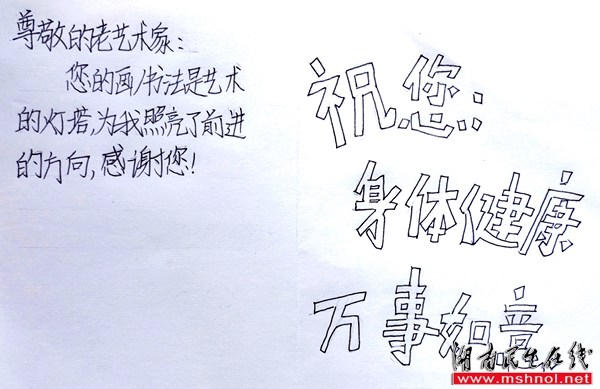 尊敬的老艺术家：
您的画/书法是艺术
的灯塔,为我照亮了前进
的方向,感谢您!
祝您:
身体健康
万事如意
湖南民生在线
www.mshnol.net